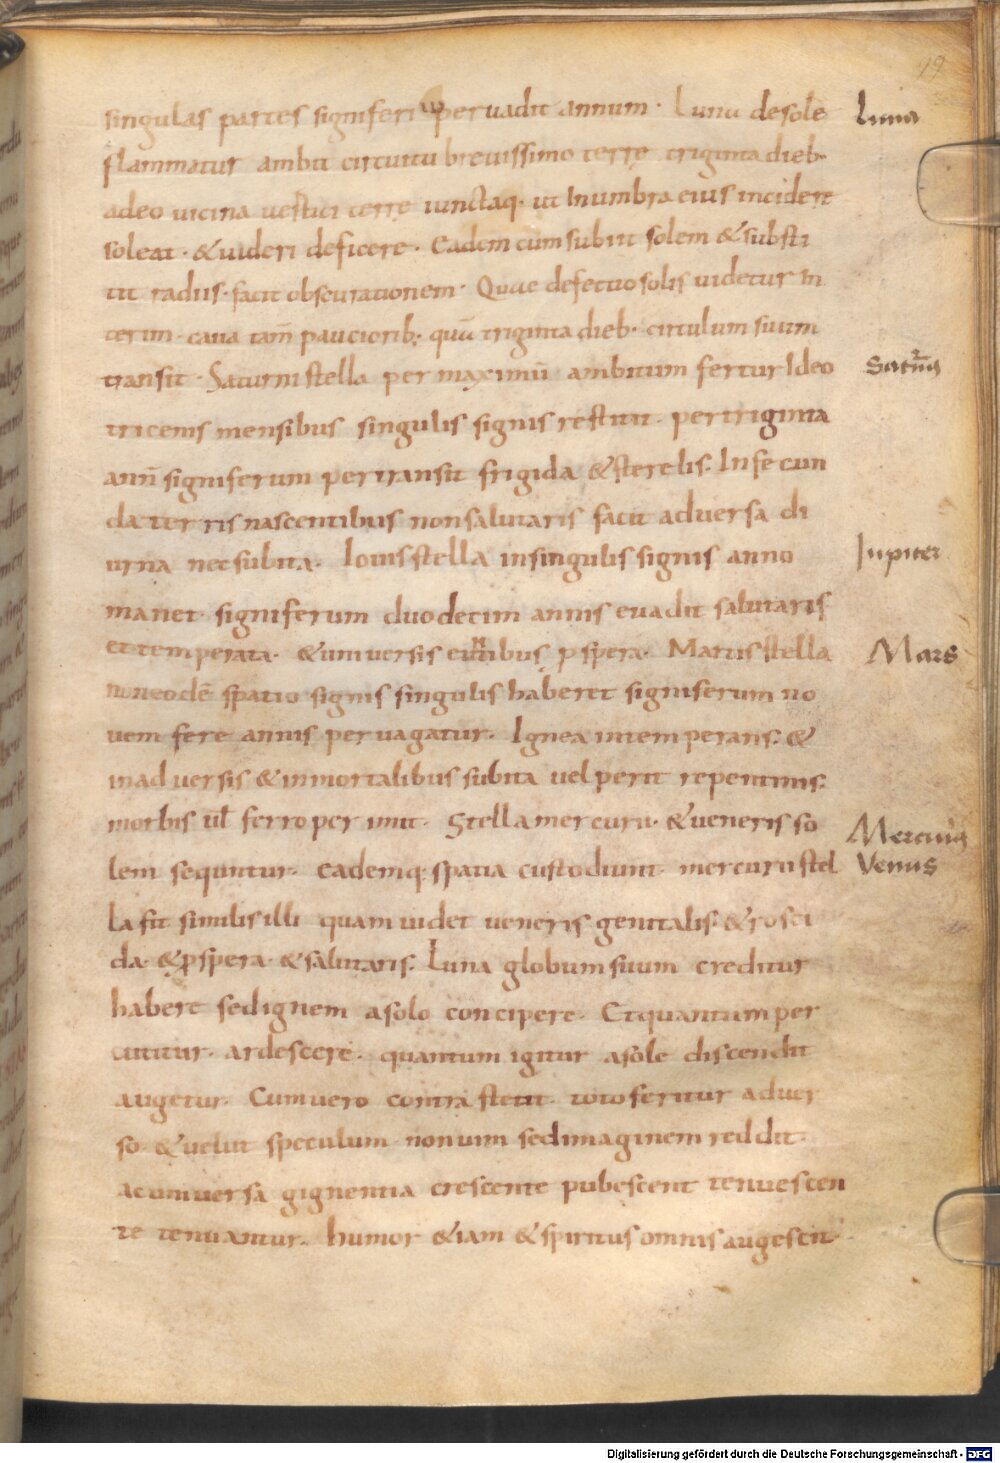 19
singulas partes signiferi pervadit annum · Luna de sole
Luna
flammatur ambit circuitu brevissimo terre triginta dieb·
adeo vicina vestici terre iunctaq· ut In umbra eius incidere
soleat · & videri deficere · Eadem cum subiit solem & substi
tit radiis · facit obscurationem · Quae defectio solis videtur In
terim · cava tam̄ pauciorib; quā triginta dieb· circulum suum
transit · Saturni stella per maximū ambitum fertur Ideo
Saturnus
tricenis mensibus singulis signis restitit · per triginta
ann̄ signiferum pertransit frigida & sterelis · Infecun
da terris nascentibus non salutaris facit adversa di
urna nec subita · Iovis stella in singulis signis anno
Iupiter
manet · signiferum duodecim annis evadit salutaris
et temperata · & universis prospera · Martis stella
Mars
eodē spatio signis singulis haberet signiferum no
vem fere annis pervagatur · Ignea intemperans · &
inadversis & inmortalibus subita vel perit repentinis
morbis ul ferro perimit · Stella mercurii · & veneris so
Mercurius
lem sequntur · eademq· spatia custodiunt · mercurii stel
Venus
la fit similis illi quam videt veneris genitalis · & rosci
da · & pspera · & salutaris · Luna globum suum creditur
habere sed ignem a solo concipere · Et quantum per
cutitur · ardescere · quantum igitur a sole discendit
augetur · Cum vero contra stetit · toto feritur adver
so · & velut speculum non vim sed imaginem reddit ·
ac universa gignentia crescente pubescent tenuescen
te tenuantur · humor &iam & spiritus omnis augescit ·
Digitalisierung gefördert durch die Deutsche Forschungsgemeinschaft - DFG